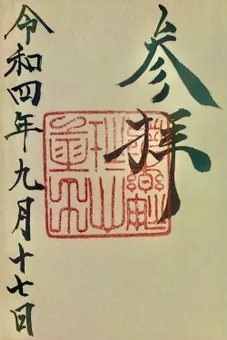 参拝
令和四年九月十七日